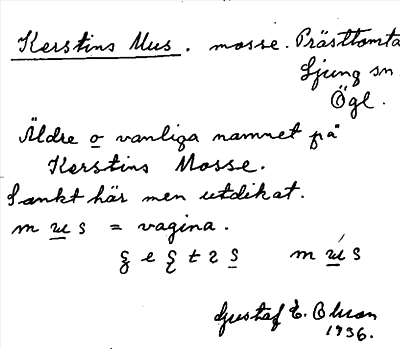 Kerstins Mus. mosse. Prästtomta
Ljung sn
Ögl.
Äldre o vanliga namnet på
Kerstins Mosse.
Sankt här men utdikat.
m u s = vagina.
m ú s
Gustaf E. Olson
1936.